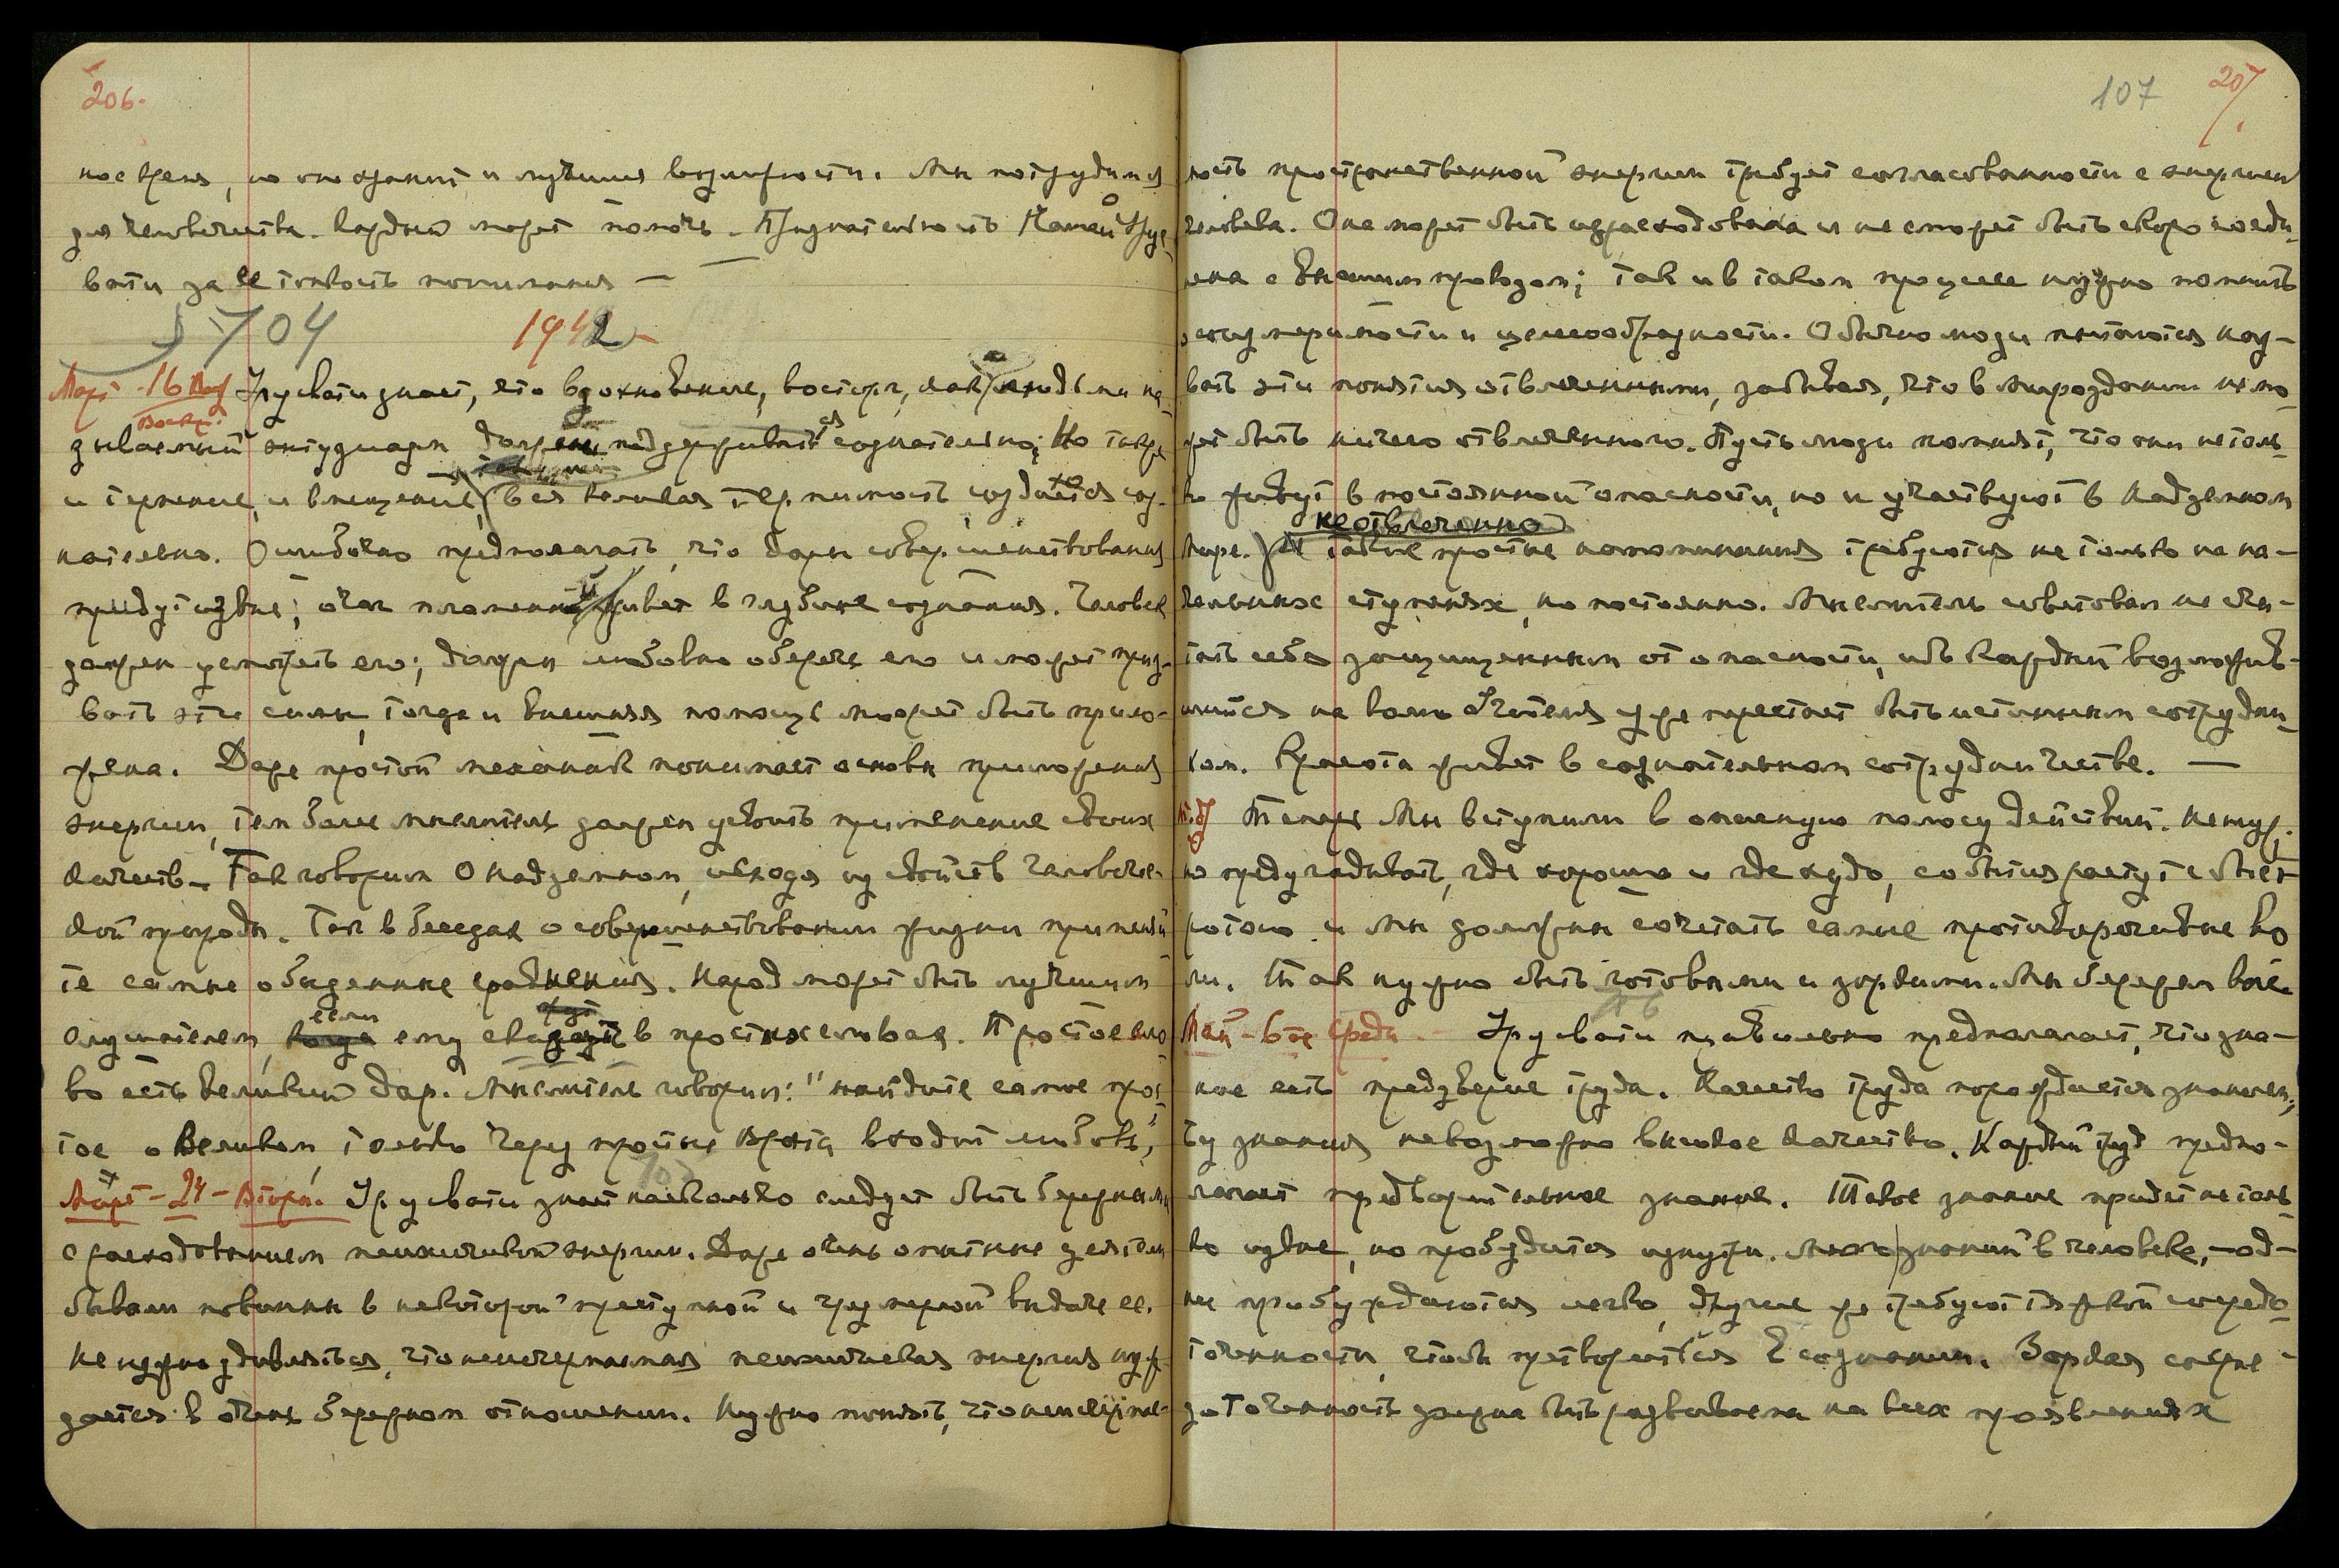 206.
ное время, но оно хранит и лучшие возможности. Мы потрудимся
для человечества. Каждый может помочь. Признательность Нашей Уру-
свати за ее тонкость понимания —
704
1942
Март - 16
Урусвати знает, что вдохновение, восторг, как люди на-
зываемый энтузиазм должен поддерживаться сознательно; Но также
и терпение, и вмещение, вся великая терпимость создается соз-
нательно. Ошибочно предполагать, что дары совершенствования
придут извне; очаг пламенный живет в глубине сознания. Человек
должен усмотреть его; должен любовно оберечь его и может приз-
вать эти силы, тогда и внешняя помощь может быть прило-
жена. Даже простой механик понимает основы приложения
энергии, тем более мыслитель должен усвоить применение своих
качеств. Так говорим о надземном, исходя из свойств человечес-
кой природы. Так в беседах о совершенствовании жизни применяй-
те самые обыденные сравнения. Народ может быть лучшим
слушателем, если ему скажут в простых словах. Простое сло-
во есть великий дар. Мыслитель говорил: "найдите самое прос-
тое о Великом, только через простые врата входит любовь",
705
Март - 24 - Вторн. Урусвати знает насколько следует быть бережным
с расходованием психической энергии. Даже очень опытные деятели
бывали повинны в некоторой преступной и чрезмерной выдаче ее.
Не нужно удивляться, что неисчерпаемая психическая энергия нуж-
дается в очень бережном отношении. Нужно понять, что неисчерпае-
107
207
мость пространственной энергии требует согласованности с энергией
человека. Она может быть израсходована и не сможет быть скоро соеди-
нена с внешним проводом; так и в таком процессе нужно помнить
о соизмеримости и целесообразности. Обычно люди пытаются наз-
вать эти понятия отвлеченными, забывая, что в мироздании не мо-
жет быть ничего отвлеченного. Пусть люди помнят, что они не толь-
ко живут в постоянной опасности, но и участвуют в Надземном
неотвлеченно
Мире. Такие простые напоминания требуются не только на на-
чальных ступенях, но постоянно. Мыслитель советовал не счи-
тать себя защищенным от опасности, ибо каждый возложив-
шийся на волю Учителя уже перестает быть истинным сотрудни-
ком. Красота живет в сознательном сотрудничестве. —
Теперь Мы вступили в опасную полосу действий. Не нуж-
но предугадывать, где хорошо и где худо, события растут с быст-
ротою и мы должны сочетать самые противоречивые во-
ли. Так нужно быть готовыми и зоркими. Мы бережем вас.
Май - 6ое Среда. Урусвати правильно предполагает, что зна-
ние есть преддверие труда. Качество труда порождается знанием,
без знания невозможно высокое качество. Каждый труд предпо-
лагает предварительное знание. Такое знание придет не толь-
ко извне, но пробудится изнутри. Много знаний в человеке, — од-
ни пробуждаются легко, другие же требуют тяжкой сосредо-
точенности, чтобы претвориться в сознании. Зоркая сосре-
доточенность должна быть развиваема на всех проявлениях